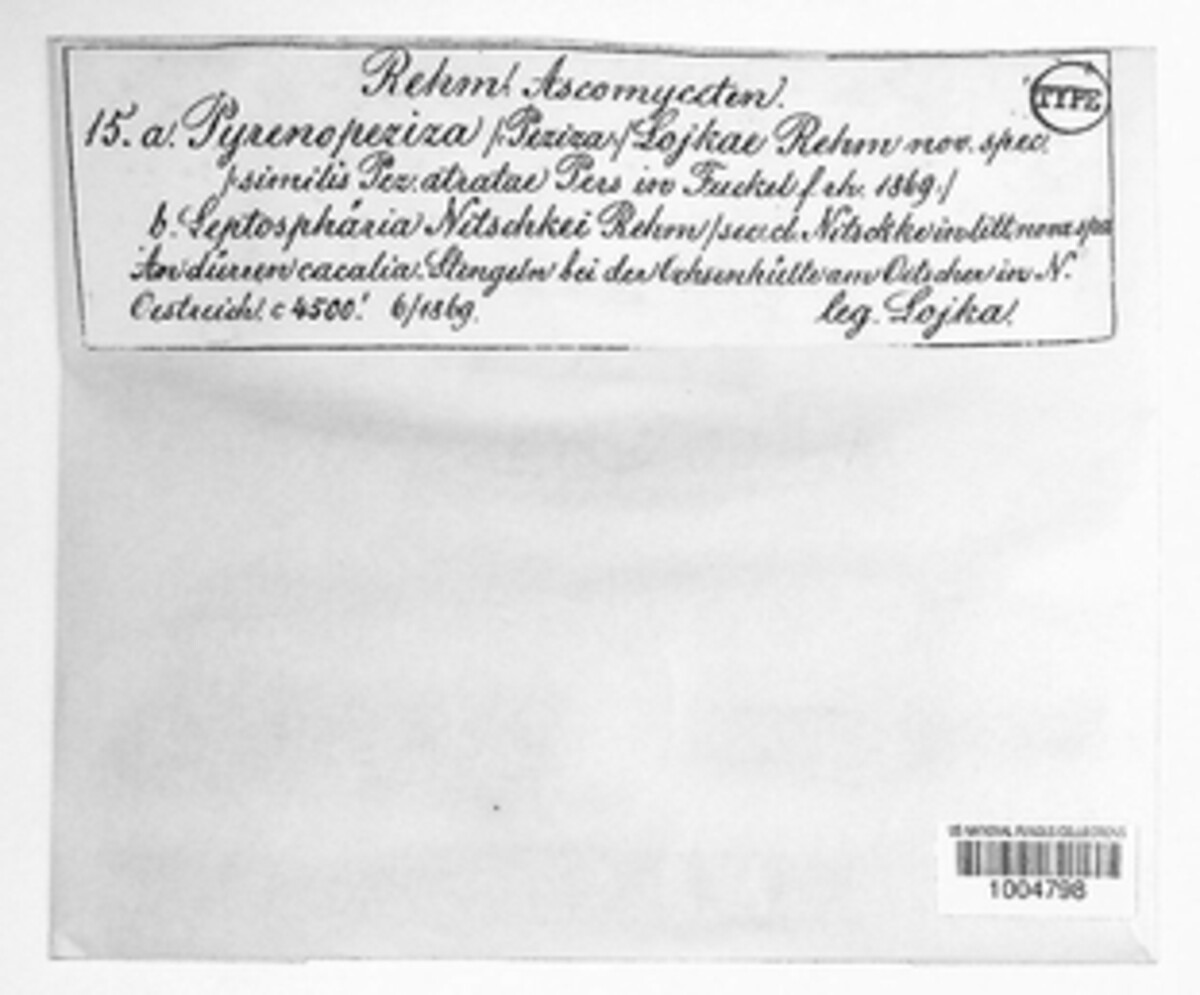 Rehm. Ascomyceten.
TYPE
15. a. Pyrenopeziza /Peziza/ Lojkae Rehm nov. spec.
/similis Pez. atratae Pers in Fuckel f. rh. 1869./
b. Leptosphäria Nitschkei Rehm /secd. Nitschke in litt. nova spec
An dürren cacalia. Stengeln bei der Ochsenhütte am Oetscher in N.
Oestreich. c 4500'. 6/1869.
leg. Lojka.
US NATIONAL FUNGUS COLLECTIONS
1004798